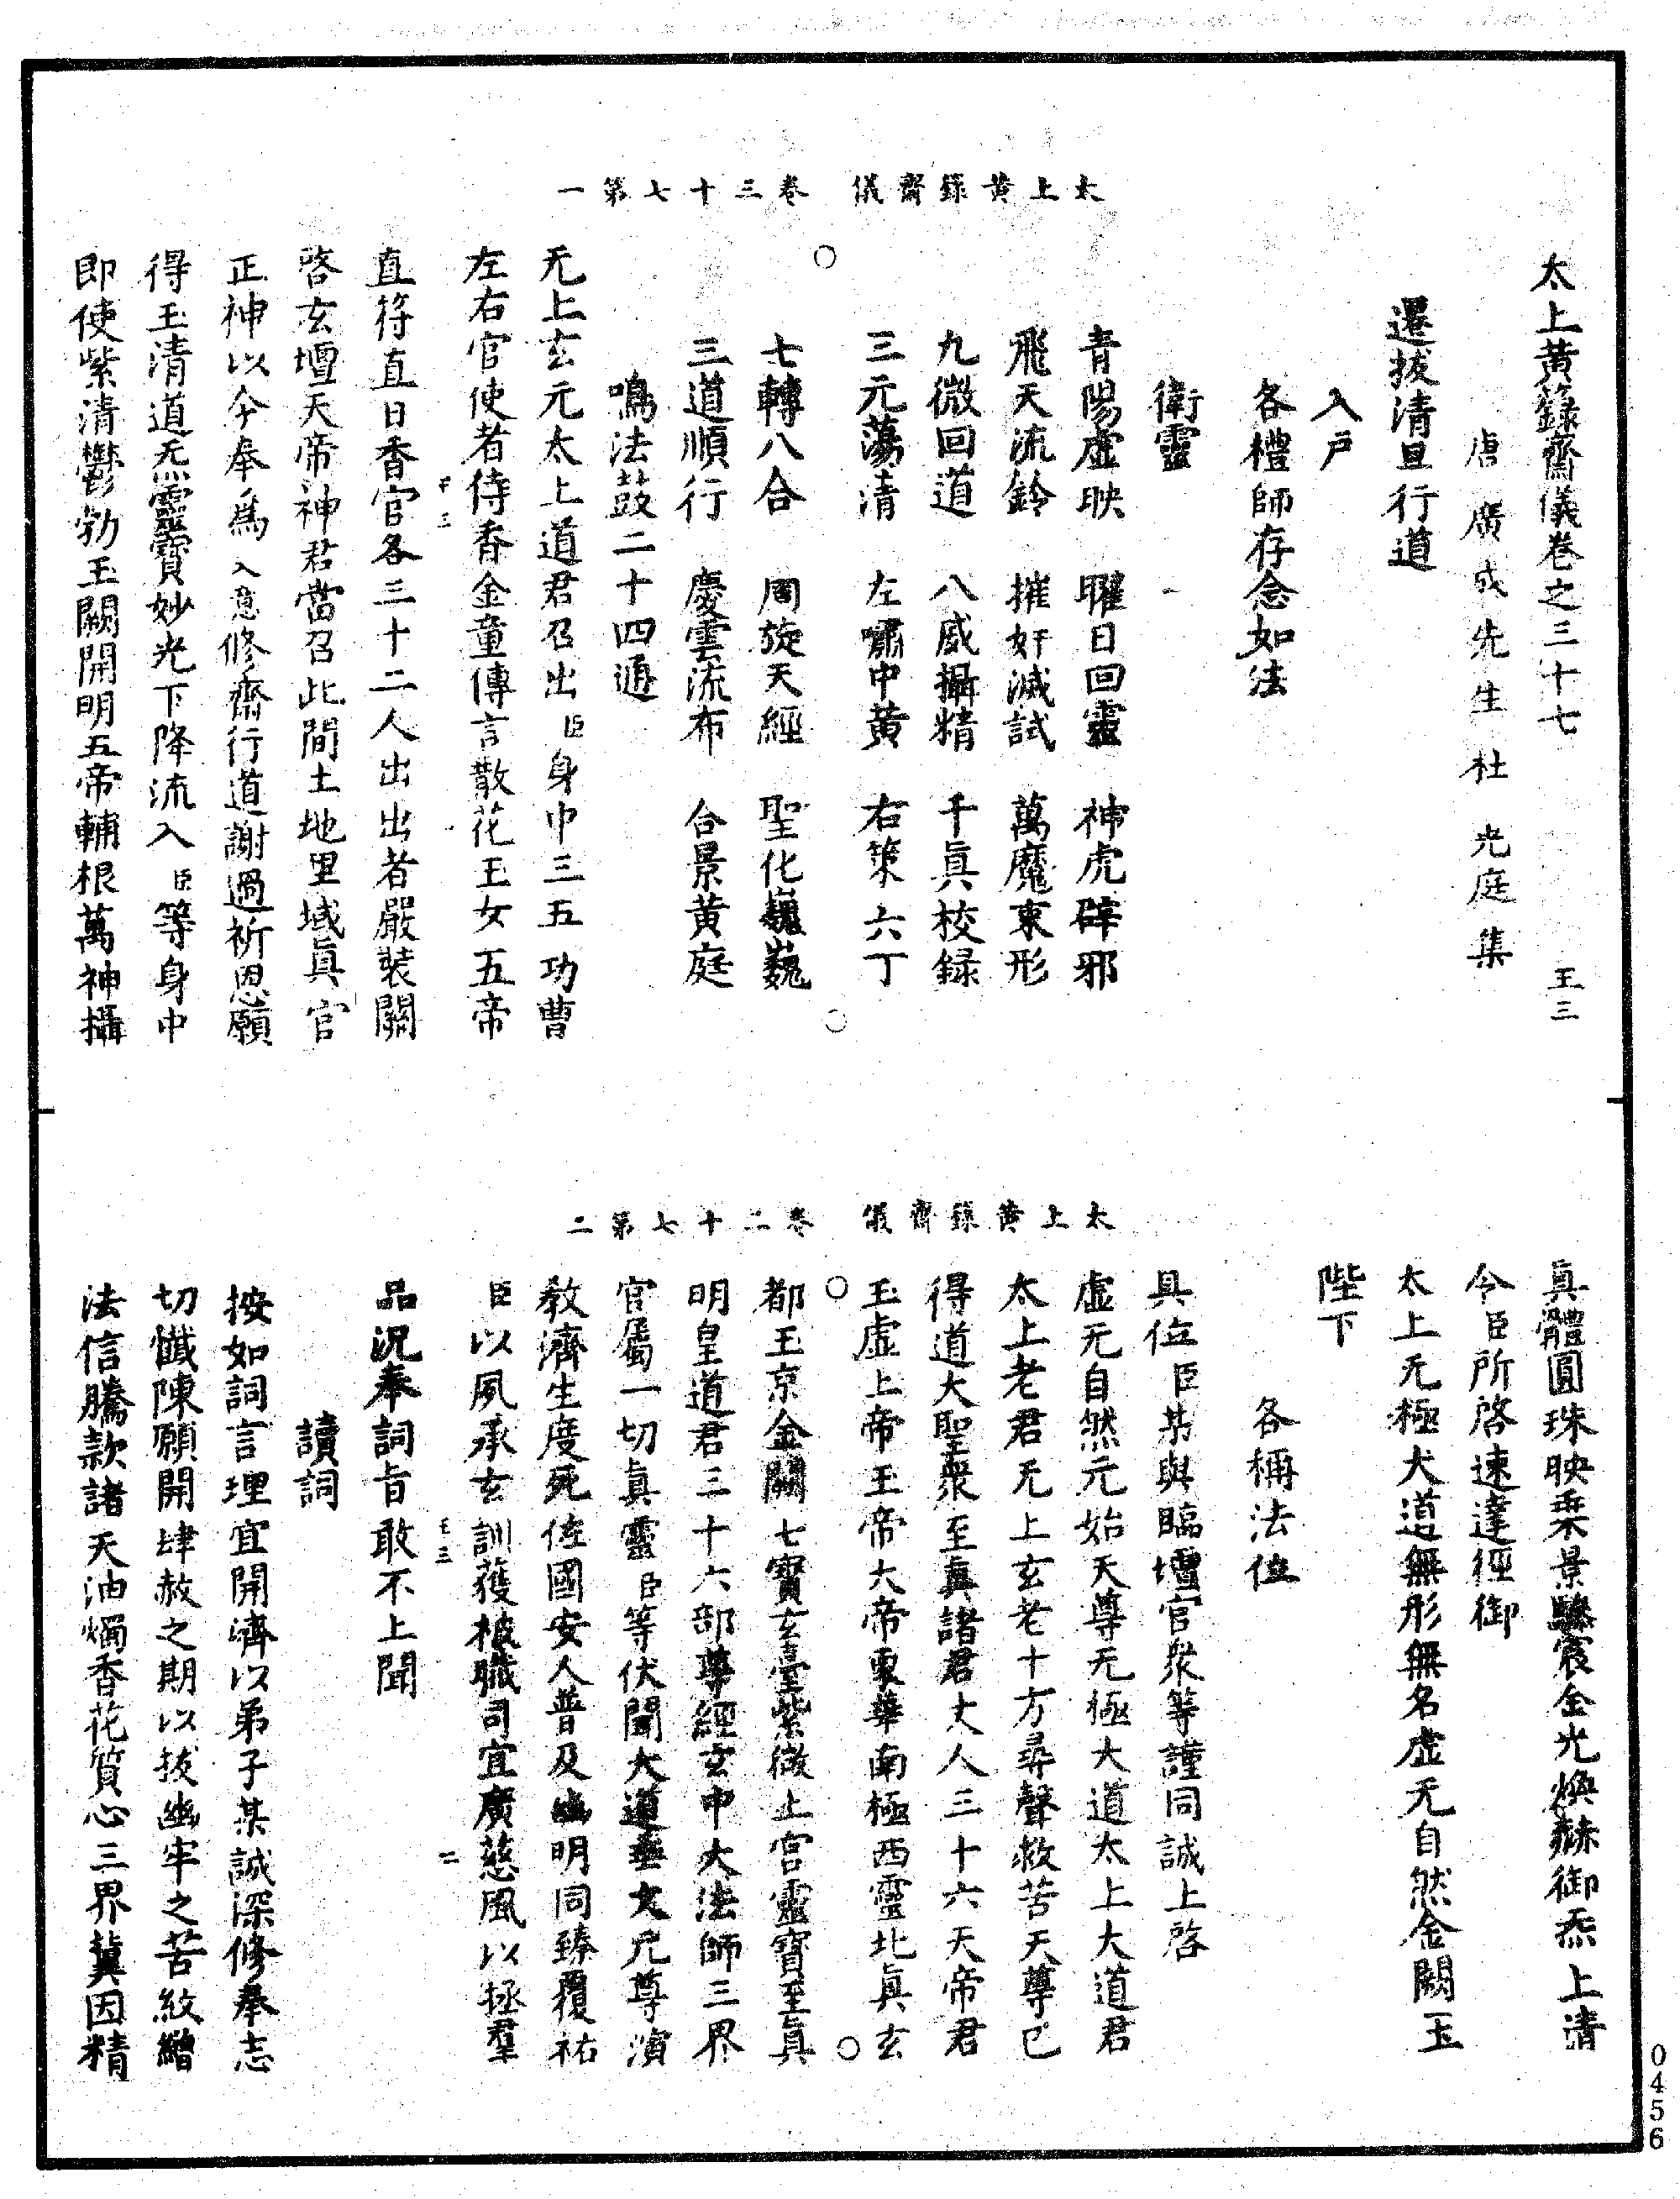 太上黃籙齋儀　卷三十七第一
太上黃籙齋儀卷之三十七　王三
唐廣成先生杜光庭集
遷拔清旦行道
入戶
各禮師存念如法
衛靈
青陽虛映　曜日回靈　神虎辟邪
飛天流鈴　摧奸滅試　萬魔束形
九微回道　八威攝精　千眞校録
三元蕩清　左嘯中黃　右策六丁
七轉八合　周旋天經　聖化巍巍
三道順行　慶雲流布　合景黃庭
鳴法鼓二十四通
无上玄元太上道君召出臣身中三五功曹
左右官使者侍香金童傳言散花玉女五帝
直符直日香官各三十二人出出者嚴裝關
啓玄壇天帝神君當召此間土地里域眞官
正神以今奉爲入意修齋行道謝過祈恩願
得玉清道炁靈寶妙光下降流入臣等身中
即使紫清鬱勃玉闕開明五帝輔根萬神攝
太上黃籙齋儀　卷三十七第二
眞體圓珠映乗景驂宸金光煥赫御炁上清
今臣所啓速達徑御
太上无極大道無形無名虛无自然金闕玉
陛下
各稱法位
具位臣某與臨壇官衆等謹同誠上啓
虛无自然元始天尊无極大道太上大道君
太上老君无上玄老十方尋聲救苦天尊已
得道大聖衆至眞諸君丈人三十六天帝君
玉虛上帝玉帝大帝東華南極西靈北眞玄
都玉京金闕七寶玄臺紫微上宮靈寶至眞
明皇道君三十六部尊經玄中大法師三界
官屬一切眞靈臣等伏聞大道垂文元尊演
敎濟生度死佐國安人普及幽明同臻覆祐
臣以夙承玄訓獲被職司宜廣慈風以拯羣
品況奉詞旨敢不上聞
讀詞
按如詞言理宜開濟以弟子某誠深修奉志
切懺陳願開肆赦之期以拔幽牢之苦紋繒
法信騰款諸天油燭香花質心三界冀因精
0456